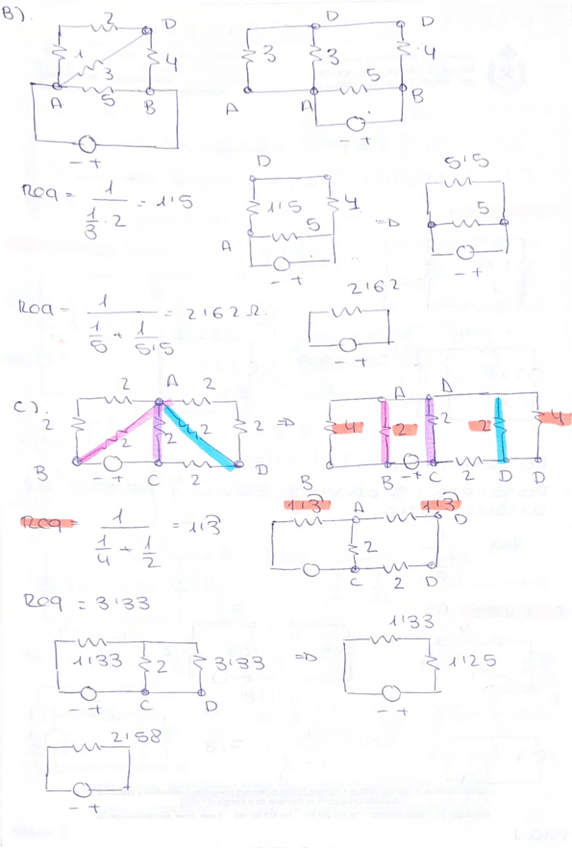 B).
2 D
1 3 4
A 5 B
- +
D D
3 3 4
A A 5 B
- +
Req = 1 / (1/3 · 2) = 1'5
D
1'5 4
A 5
- +
=D
5'5
5
- +
Req = 1 / (1/5 + 1/5'5) = 2'62 Ω.
2'62
- +
C).
2 A 2
2 2 2 2 2
B + C 2 D
=D
A A
4 2 2 2 4
B B - + C 2 D D
Req = 1 / (1/4 + 1/2) = 1'3
1'3 A 1'3 D
2
C 2 D
Req = 3'33
1'33 2 3'33
- + C D
=D
1'33
1'25
- +
2'58
- +